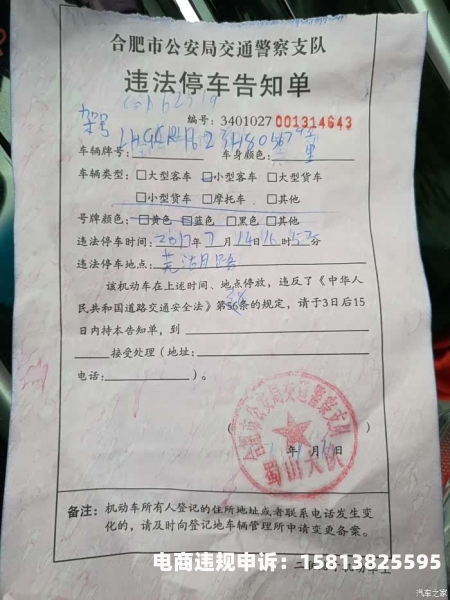 合肥市公安局交通警察支队
违法停车告知单
编号：3401027 001314643
架号
车辆牌号： 车身颜色： 黑
车辆类型：□大型客车 □小型客车 □大型货车
□小型货车 □摩托车 □其他
号牌颜色：□黄色 □蓝色 □黑色 □其他
违法停车时间：2017年7月14日16时53分
违法停车地点：芜湖路
该机动车在上述时间、地点停放，违反了《中华人
民共和国道路交通安全法》第56条的规定，请于3日后15
日内持本告知单，到
接受处理（地址：
电话： ）。
（
合肥市公安局交通警察支队
蜀山大队
年 月 日
备注：机动车所有人登记的住所地址或者联系电话发生变
化的，请及时向登记地车辆管理所申请变更备案。
电商违规申诉：15813825595
汽车之家